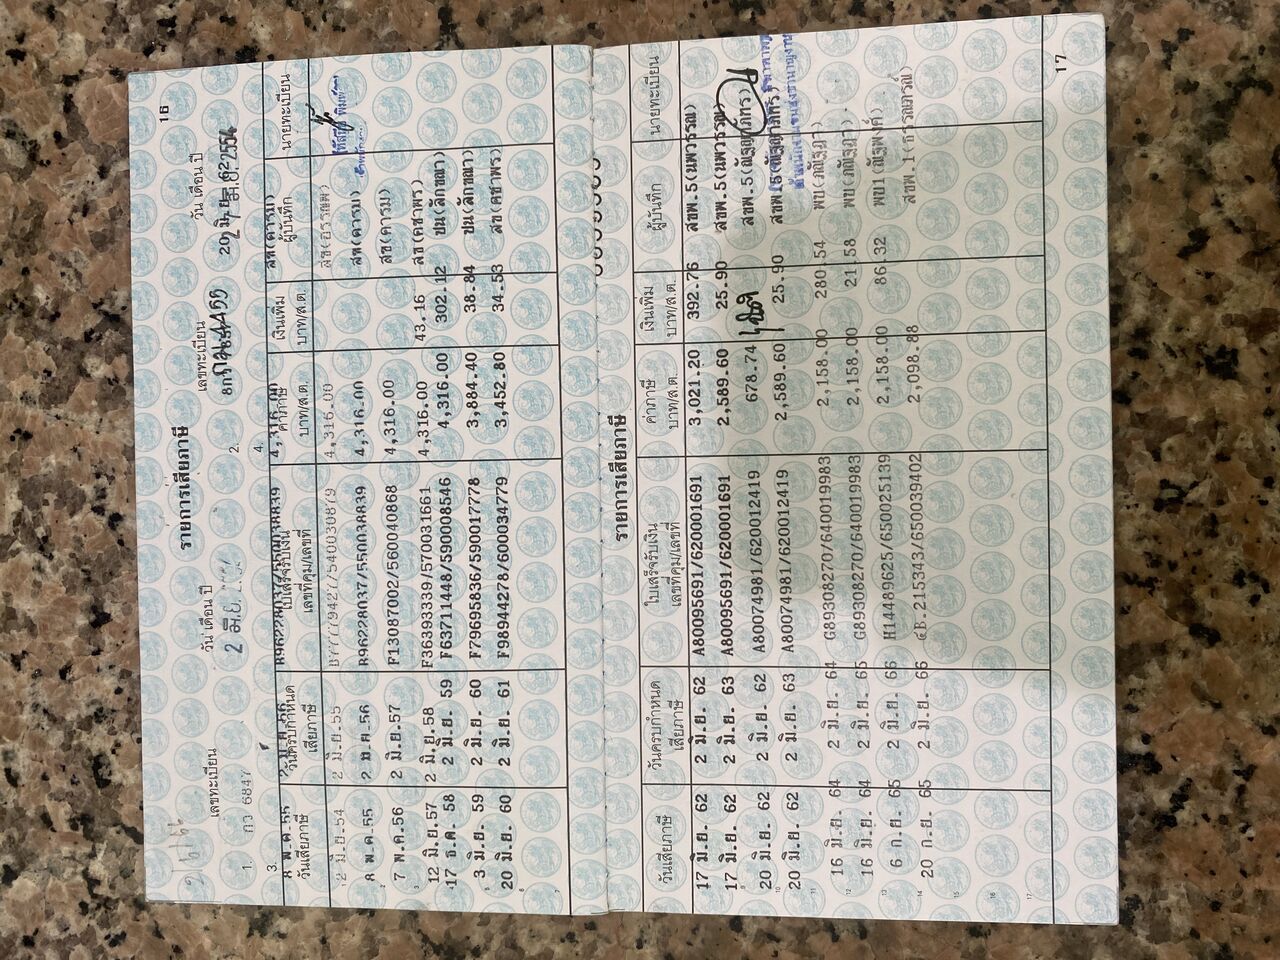 16
รายการเสียภาษี
เลขทะเบียน วัน เดือน ปี เลขทะเบียน วัน เดือน ปี
1. กว 6847 2 มิ.ย. 2.
3. 4.
8 พ.ค.55 4,316.00 สช(คารม)
วันเสียภาษี วันครบกำหนดเสียภาษี ใบเสร็จรับเงิน เลขที่คุม/เลขที่ ค่าภาษี บาท/ส.ต. เงินเพิ่ม บาท/ส.ต. ผู้บันทึก นายทะเบียน
2 มิ.ย.54 2 มิ.ย.55 4,316.00
8 พ.ค.55 2 มิ.ย.56 B96228037/550038839 4,316.00 สช(คารม)
7 พ.ค.56 2 มิ.ย.57 F13087002/560040868 4,316.00 สช(คารม)
12 มิ.ย.57 2 มิ.ย.58 F36393339/570031661 4,316.00 43.16 สช(คชาพร)
17 ธ.ค. 58 2 มิ.ย. 59 F63711448/590008546 4,316.00 302.12 ชน(ลักขณา)
3 มิ.ย. 59 2 มิ.ย. 60 F79695836/590017778 3,884.40 38.84 ชน(ลักขณา)
20 มิ.ย. 60 2 มิ.ย. 61 F98944278/600034779 3,452.80 34.53 สช(คชาพร)
รายการเสียภาษี
วันเสียภาษี วันครบกำหนดเสียภาษี ใบเสร็จรับเงิน เลขที่คุม/เลขที่ ค่าภาษี บาท/ส.ต. เงินเพิ่ม บาท/ส.ต. ผู้บันทึก นายทะเบียน
17 มิ.ย. 62 2 มิ.ย. 62 A80095691/620001691 3,021.20 392.76 สขพ.5(นพวรรณ)
17 มิ.ย. 62 2 มิ.ย. 63 A80095691/620001691 2,589.60 25.90 สขพ.5(นพวรรณ)
20 มิ.ย. 62 2 มิ.ย. 62 A80074981/620012419 678.74 สขพ.5(ณัฐญาภัทร)
20 มิ.ย. 62 2 มิ.ย. 63 A80074981/620012419 2,589.60 25.90 สขพ.5(ณัฐญาภัทร)
16 มิ.ย. 64 2 มิ.ย. 64 G89308270/640019983 2,158.00 280.54 พบ(ภณัฐฎา)
16 มิ.ย. 64 2 มิ.ย. 65 G89308270/640019983 2,158.00 21.58 พบ(ภณัฐฎา)
6 ก.ย. 65 2 มิ.ย. 66 H14489625/650025139 2,158.00 86.32 พบ1(ณัฐพงศ์)
20 ก.ย. 65 2 มิ.ย. 66 215343/650039402 2,098.88
17